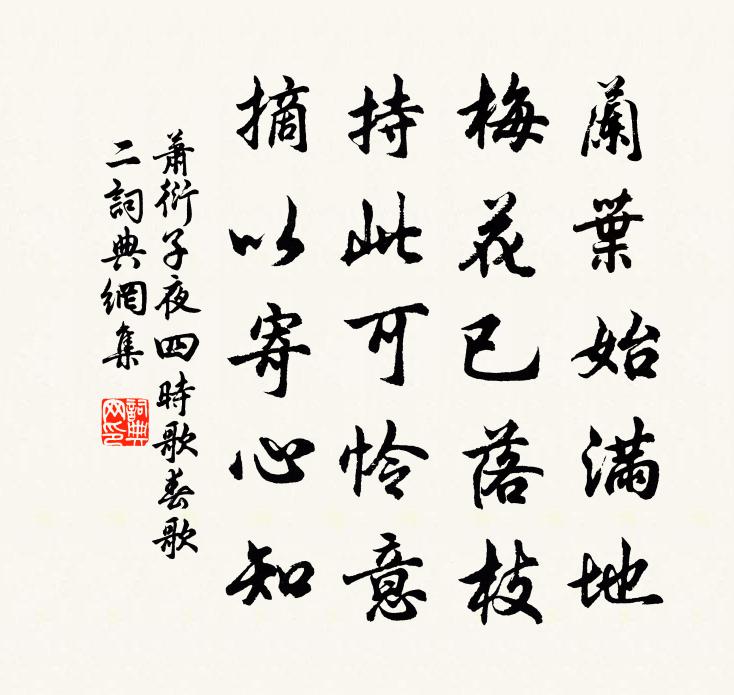 蘭葉始滿地
梅花已落枝
持此可怜意
摘以寄心知
蕭衍子夜四時歌春歌
二詞典網集
詞典
网印